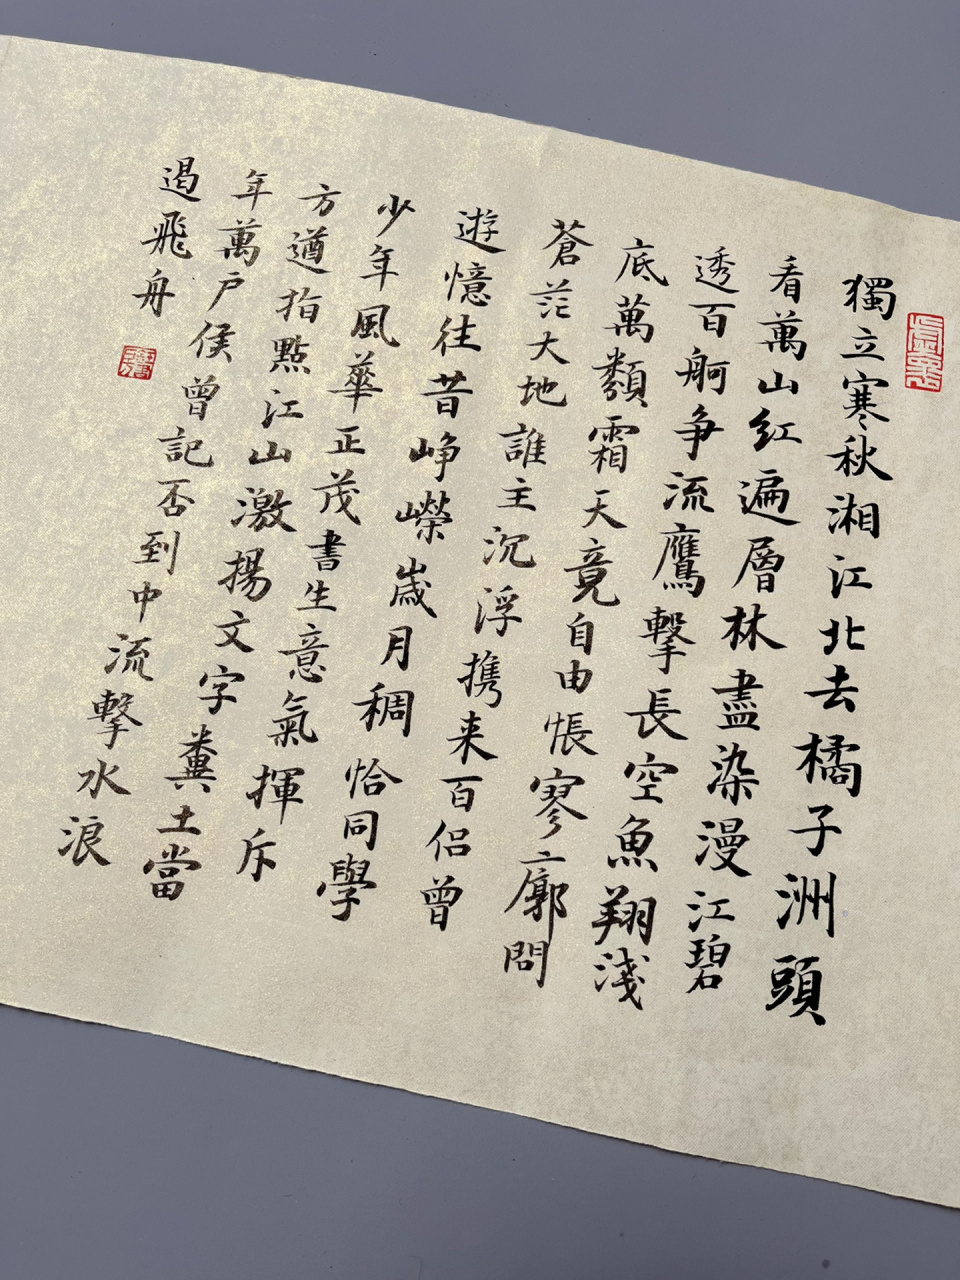 獨立寒秋湘江北去橘子洲頭
看萬山红遍層林盡染漫江碧
透百舸争流鷹擊長空魚翔淺
底萬類霜天竟自由悵寥廓問
蒼茫大地誰主沉浮携来百侣曾
遊憶往昔峥嶸歲月稠恰同學
少年風華正茂書生意氣揮斥
方遒指點江山激揚文字糞土當
年萬户侯曾記否到中流擊水浪
遏飛舟